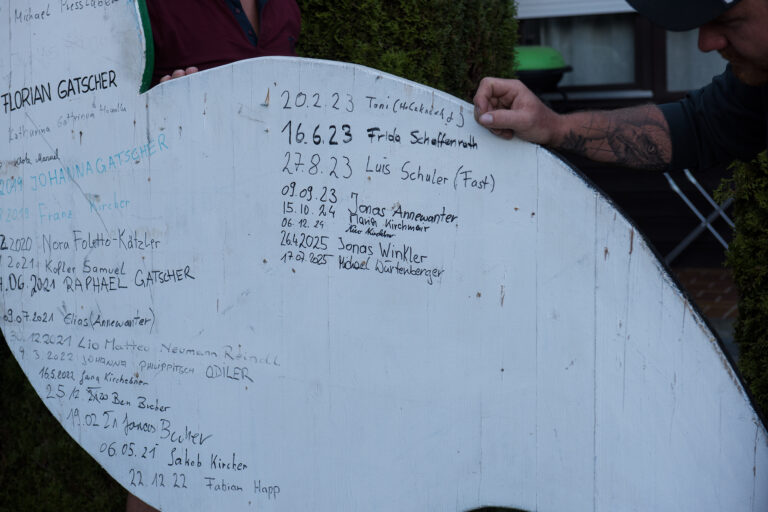 Michael
FLORIAN GATSCHER
Katharina Gatterina
Manuel
JOHANNA GATSCHER
2018 Franz Kircher
2.2020 Nora Foletto-Kätzler
2021 Kofler Samuel
.06.2021 RAPHAEL GATSCHER
09.07.2021 Elias (Annewanter)
12 2021 Lio Matteo Neumann Reindl
9. 3. 2022 JOHANNA PHILIPPITSCH ODILER
16.5.2022 Jana Kirchebner
25.12 Ben Bucher
19.02 Jonas Bucher
06.05.21 Jakob Kircher
22.12.22 Fabian Happ
20.2.23 Toni
16.6.23 Frida Schaffenrath
27.8.23 Luis Schuler (Fast)
09.09.23 Jonas Annewanter
15.10.24 Maria Kirchmair
06.12.24
26.4.2025 Jonas Winkler
17.07.2025 Michael Würtenberger